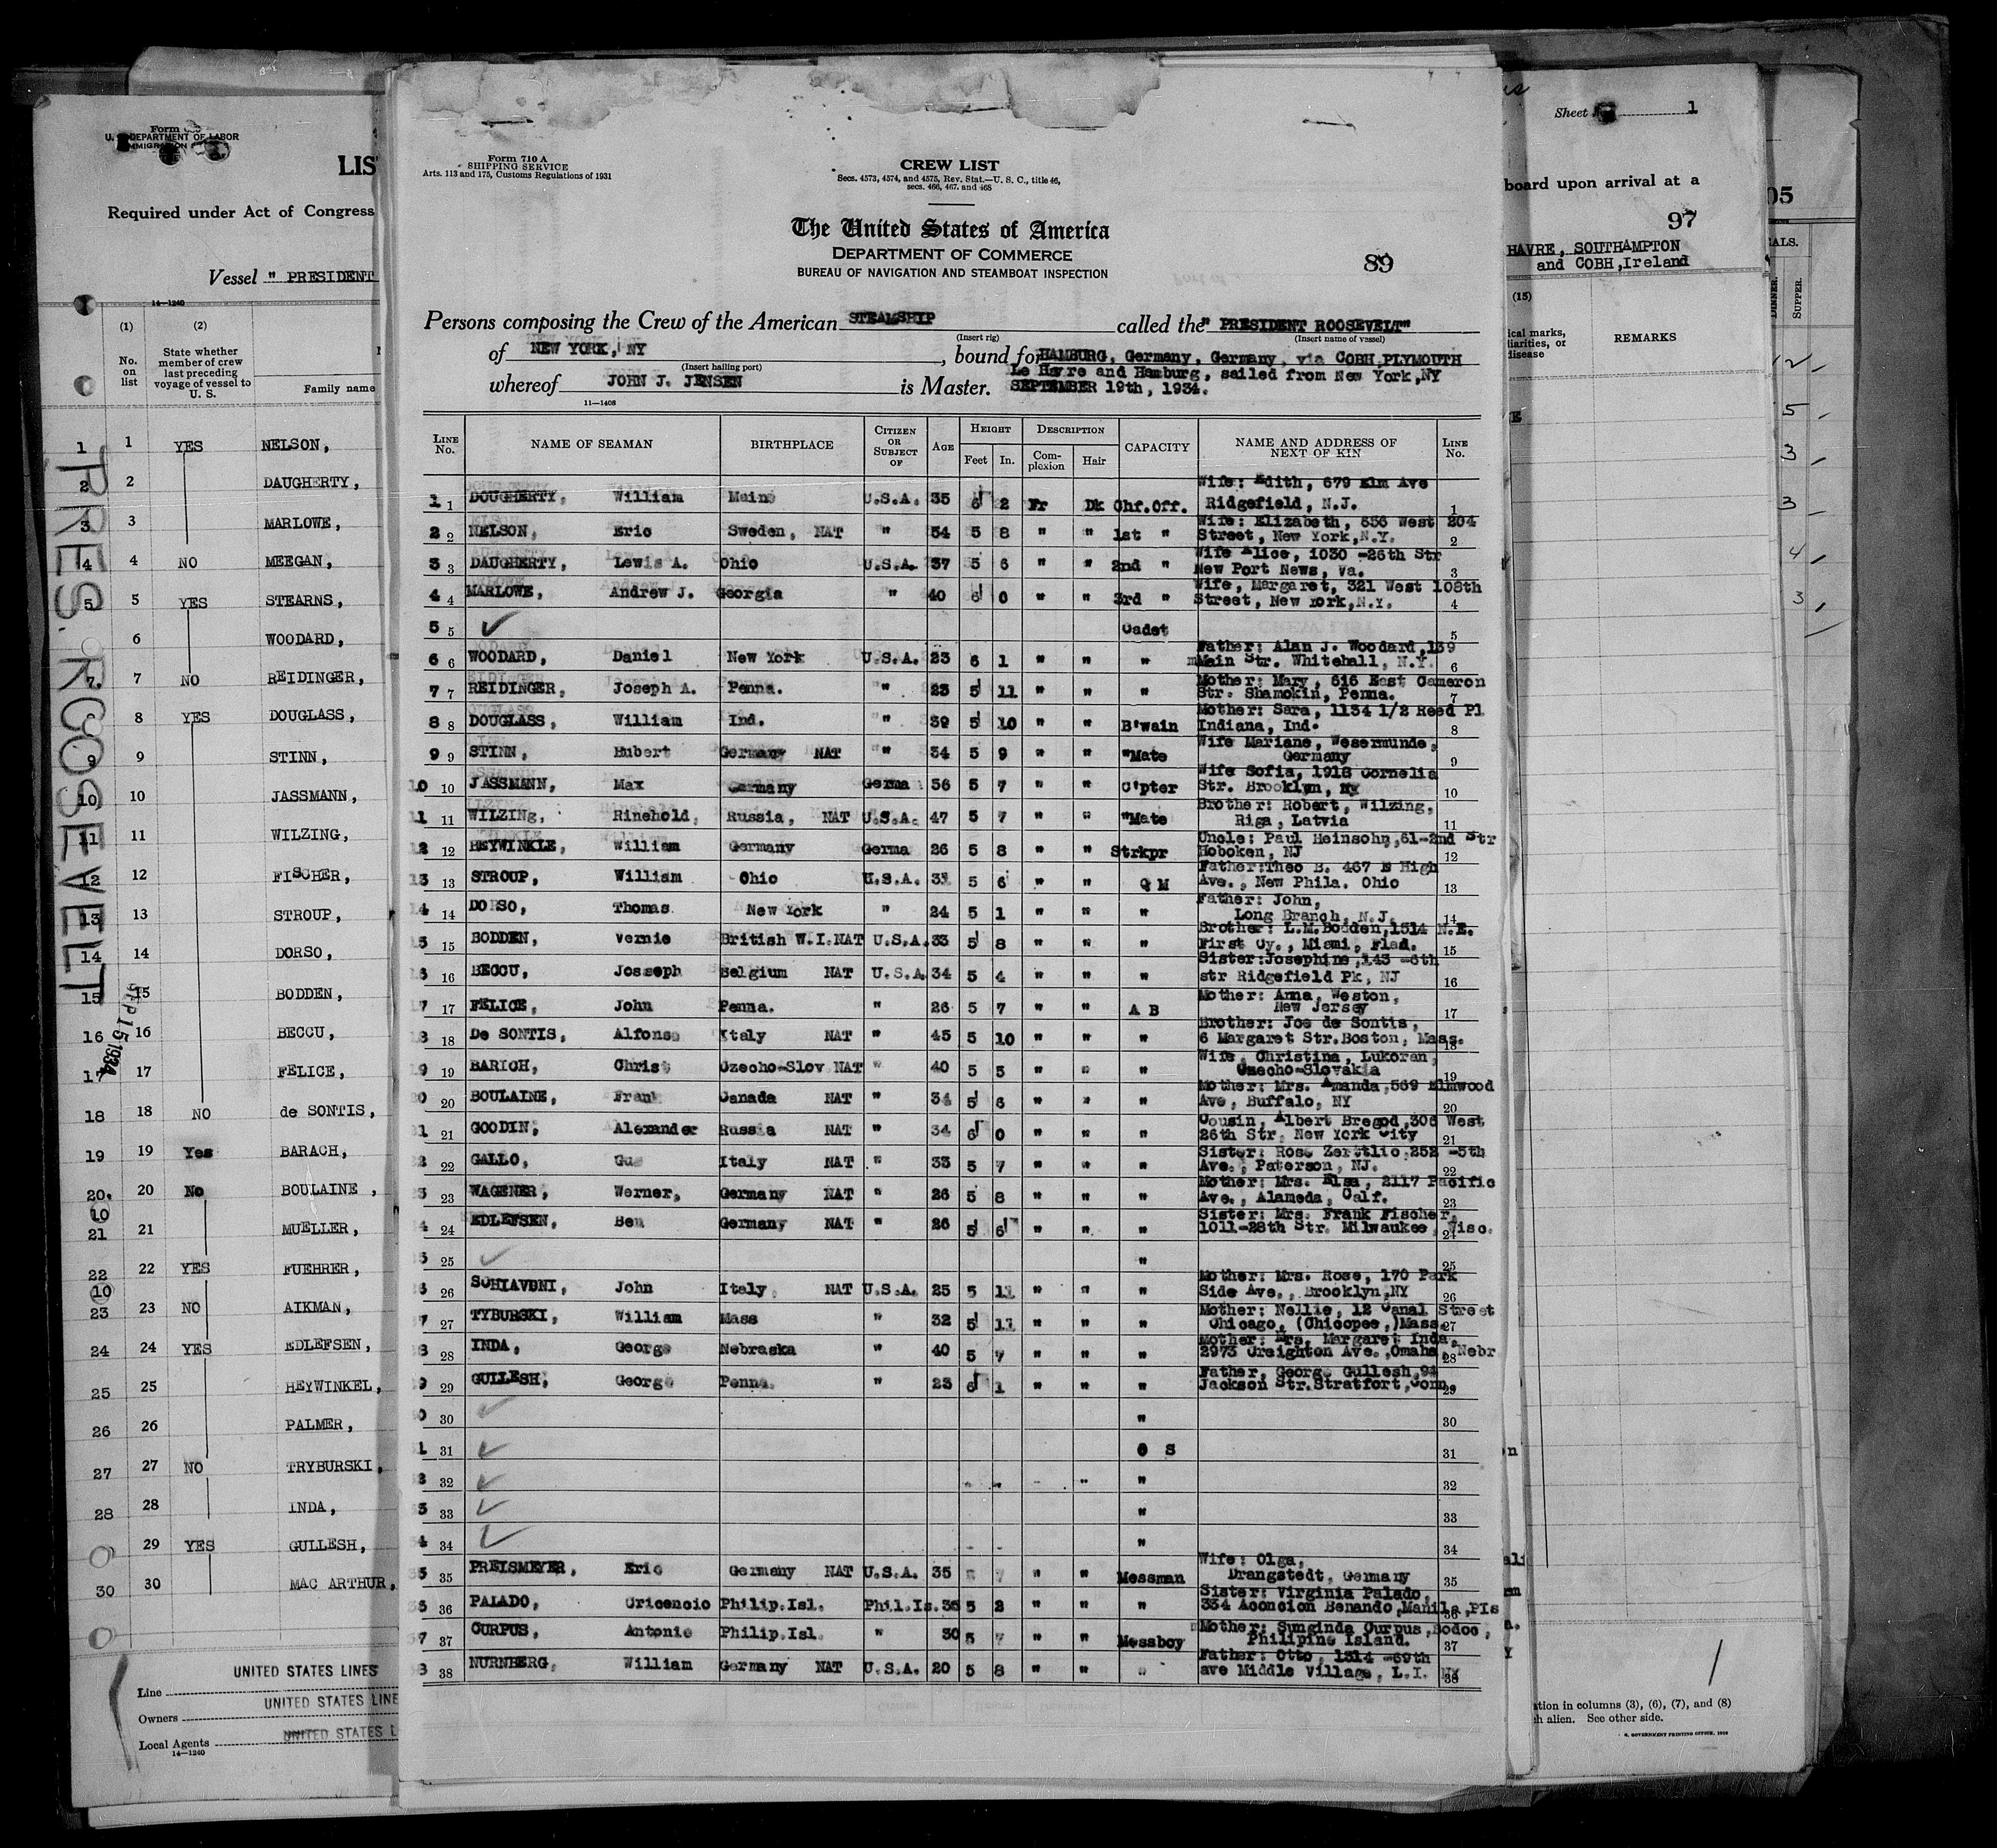 Form
U. S. DEPARTMENT OF LABOR
IMMIGRATION
LIS
Required under Act of Congress
Vessel " PRESIDENT
14—1240
(1) (2)
No. on list
State whether member of crew last preceding voyage of vessel to U. S.
Family name
1 1 YES NELSON,
2 2 DAUGHERTY,
3 3 MARLOWE,
4 4 NO MEEGAN,
5 5 YES STEARNS,
6 WOODARD,
7 7 NO REIDINGER,
8 YES DOUGLASS,
9 9 STINN,
10 10 JASSMANN,
11 11 WILZING,
12 12 FISCHER,
13 13 STROUP,
14 14 DORSO,
15 15 BODDEN,
16 16 BECCU,
17 17 FELICE,
18 18 NO de SONTIS,
19 19 Yes BARACH,
20. 20 No BOULAINE ,
10
21 21 MUELLER,
22 22 YES FUEHRER,
10
23 23 NO AIKMAN,
24 24 YES EDLEFSEN,
25 25 HEYWINKEL,
26 26 PALMER,
27 27 NO TRYBURSKI,
28 28 INDA,
29 YES GULLESH,
30 30 MAC ARTHUR,
PRES. ROOSEVELT
SEP 15 1934
UNITED STATES LINES
Line
UNITED STATES LINE
Owners
UNITED STATES L
Local Agents
14—1240
Form 710 A
SHIPPING SERVICE
Arts. 113 and 175, Customs Regulations of 1931
CREW LIST
Secs. 4573, 4574, and 4575, Rev. Stat.—U. S. C., title 46,
secs. 466, 467, and 468
The United States of America
DEPARTMENT OF COMMERCE
BUREAU OF NAVIGATION AND STEAMBOAT INSPECTION
89
Persons composing the Crew of the American STEAMSHIP called the " PRESIDENT ROOSEVELT"
(Insert rig) (Insert name of vessel)
of NEW YORK, NY, bound for HAMBURG, Germany, Germany, via COBH,PLYMOUTH
(Insert hailing port)
Le Havre and Hamburg, sailed from New York,NY
whereof JOHN J. JENSEN is Master. SEPTEMBER 19th, 1934.
11—1408
LINE No. NAME OF SEAMAN BIRTHPLACE CITIZEN OR SUBJECT OF AGE HEIGHT Feet In. DESCRIPTION Complexion Hair CAPACITY NAME AND ADDRESS OF NEXT OF KIN LINE No.
Wife: Edith, 679 Elm Ave
1 1 DOUGHERTY, William Maine U.S.A. 35 6 2 Fr Dk Chf.Off. Ridgefield, N.J. 1
Wife: Elizabeth, 656 West 204
2 2 NELSON, Eric Sweden, NAT " 54 5 8 " " 1st " Street, New York,N.Y. 2
Wife Alice, 1030 -26th Str
3 3 DAUGHERTY, Lewis A. Ohio U.S.A. 37 5 6 " " 2nd " New Port News, Va. 3
Wife, Margaret, 321 West 108th
4 4 MARLOWE, Andrew J. Georgia " 40 6 0 " " 3rd " Street, New York,N.Y. 4
5 5 ✓ Cadet 5
Father: Alan J. Woodard,139
6 6 WOODARD, Daniel New York U.S.A. 23 6 1 " " " Main Str. Whitehall, N.Y. 6
Mother: Mary, 616 East Cameron
7 7 REIDINGER, Joseph A. Penna. " 23 5 11 " " " Str. Shamokin, Penna. 7
Mother: Sara, 1134 1/2 Reed Pl
8 8 DOUGLASS, William Ind. " 39 5 10 " " B'wain Indiana, Ind. 8
Wife Mariane, Wesermunde,
9 9 STINN, Hubert Germany NAT " 34 5 9 " " "Mate Germany 9
Wife Sofia, 1918 Cornelia
10 10 JASSMANN, Max Germany Germa 56 5 7 " " C'pter Str. Brooklyn, NY 10
Brother: Robert, Wilzing,
11 11 WILZINg, Rinehold, Russia, NAT U.S.A. 47 5 7 " " "Mate Riga, Latvia 11
Uncle: Paul Heinsohn,61-2nd Str
12 12 HEYWINKLE, William Germany Germa 26 5 8 " " Strkpr Hoboken, NJ 12
Father:Theo B. 467 E High
13 13 STROUP, William Ohio U.S.A. 33 5 6 " " Q M Ave., New Phila. Ohio 13
Father: John,
14 14 DORSO, Thomas New York " 24 5 1 " " " Long Branch, N.J. 14
Brother: L.M.Bodden,1514 N.E.
5 15 BODDEN, Vernie British W.I.NAT U.S.A. 33 5 8 " " " First Cy., Miami, Flad. 15
Sister:Josephine,143 -6th
16 BECCU, Josseph Belgium NAT U.S.A 34 5 4 " " " str Ridgefield Pk, NJ 16
Mother: Anna, Weston,
7 17 FELICE, John Penna. " 26 5 7 " " A B New Jersey 17
Brother: Joe de Sontis,
18 De SONTIS, Alfonso Italy NAT " 45 5 10 " " " 6 Margaret Str.Boston, Mass. 18
Wife, Christina, Lukoran,
9 19 BARICH, Christ Czecho-Slov NAT " 40 5 5 " " " Czecho-Slovakia 19
Mother: Mrs. Amanda,569 Elmwood
0 20 BOULAINE, Frank Canada NAT " 34 5 6 " " " Ave, Buffalo, NY 20
Cousin, Albert Bregod,306 West
1 21 GOODIN, Alexander Russia NAT " 34 6 0 " " " 26th Str, New York City 21
Sister: Rose Zerttlio,252 -5th
22 GALLO, Gus Italy NAT " 33 5 7 " " " Ave., Paterson, NJ. 22
Mother: Mrs. Elsa, 2117 Pacific
23 WAGENER, Werner, Germany NAT " 26 5 8 " " " Ave., Alameda, Calf. 23
Sister: Mrs. Frank Fischer,
24 EDLEFSEN, Ben Germany NAT " 26 5 6 " " " 1011-28th Str. Milwaukee, Wisc. 24
25 ✓ " 25
Mother: Mrs. Rose, 170 Park
26 SCHIAVONI, John Italy, NAT U.S.A. 25 5 11 " " " Side Ave., Brooklyn,NY 26
Mother: Nellie, 12 Canal Street
7 27 TYBURSKI, William Mass " 32 5 11 " " " Chicago, (Chicopee,)Mass. 27
Mother: Mrs. Margaret Inda,
28 INDA, George Nebraska " 40 5 7 " " " 2973 Creighton Ave.,Omaha, Nebr 28
Father, George Gullesh,94
9 29 GULLESH, George Penna. " 23 6 1 " " " Jackson Str.Stratfort,Conn, 29
0 30 ✓ " 30
1 31 ✓ O S 31
32 ✓ " " 32
33 ✓ " 33
34 ✓ " 34
Wife: Olga,
35 PREISMEYER, Eric Germany NAT U.S.A. 35 5 7 " " Messman Drangstedt, Germany 35
Sister: Virginia Palado,
36 PALADO, Cricencio Philip.Isl. Phil.Is. 36 5 2 " " " 334 Aconcion Benando,Manila,PIs 36
Mother: Sunginda Curpus,Bodoc,
7 37 CURPUS, Antonio Philip.Isl. " 30 5 7 " " Messboy Philipine Island. 37
Father: Otto, 1514 -69th
38 NURNBERG, William Germany NAT U.S.A. 20 5 8 " " " ave Middle Village, L.I. NY 38
Sheet No. 1
board upon arrival at a
97
HAVRE, SOUTHAMPTON
and COBH,Ireland
(15)
ical marks,
liarities, or
disease
REMARKS
tion in columns (3), (6), (7), and (8)
h alien. See other side.
05
ALS.
DINNER.
SUPPER.
2
5
3
3
4
3